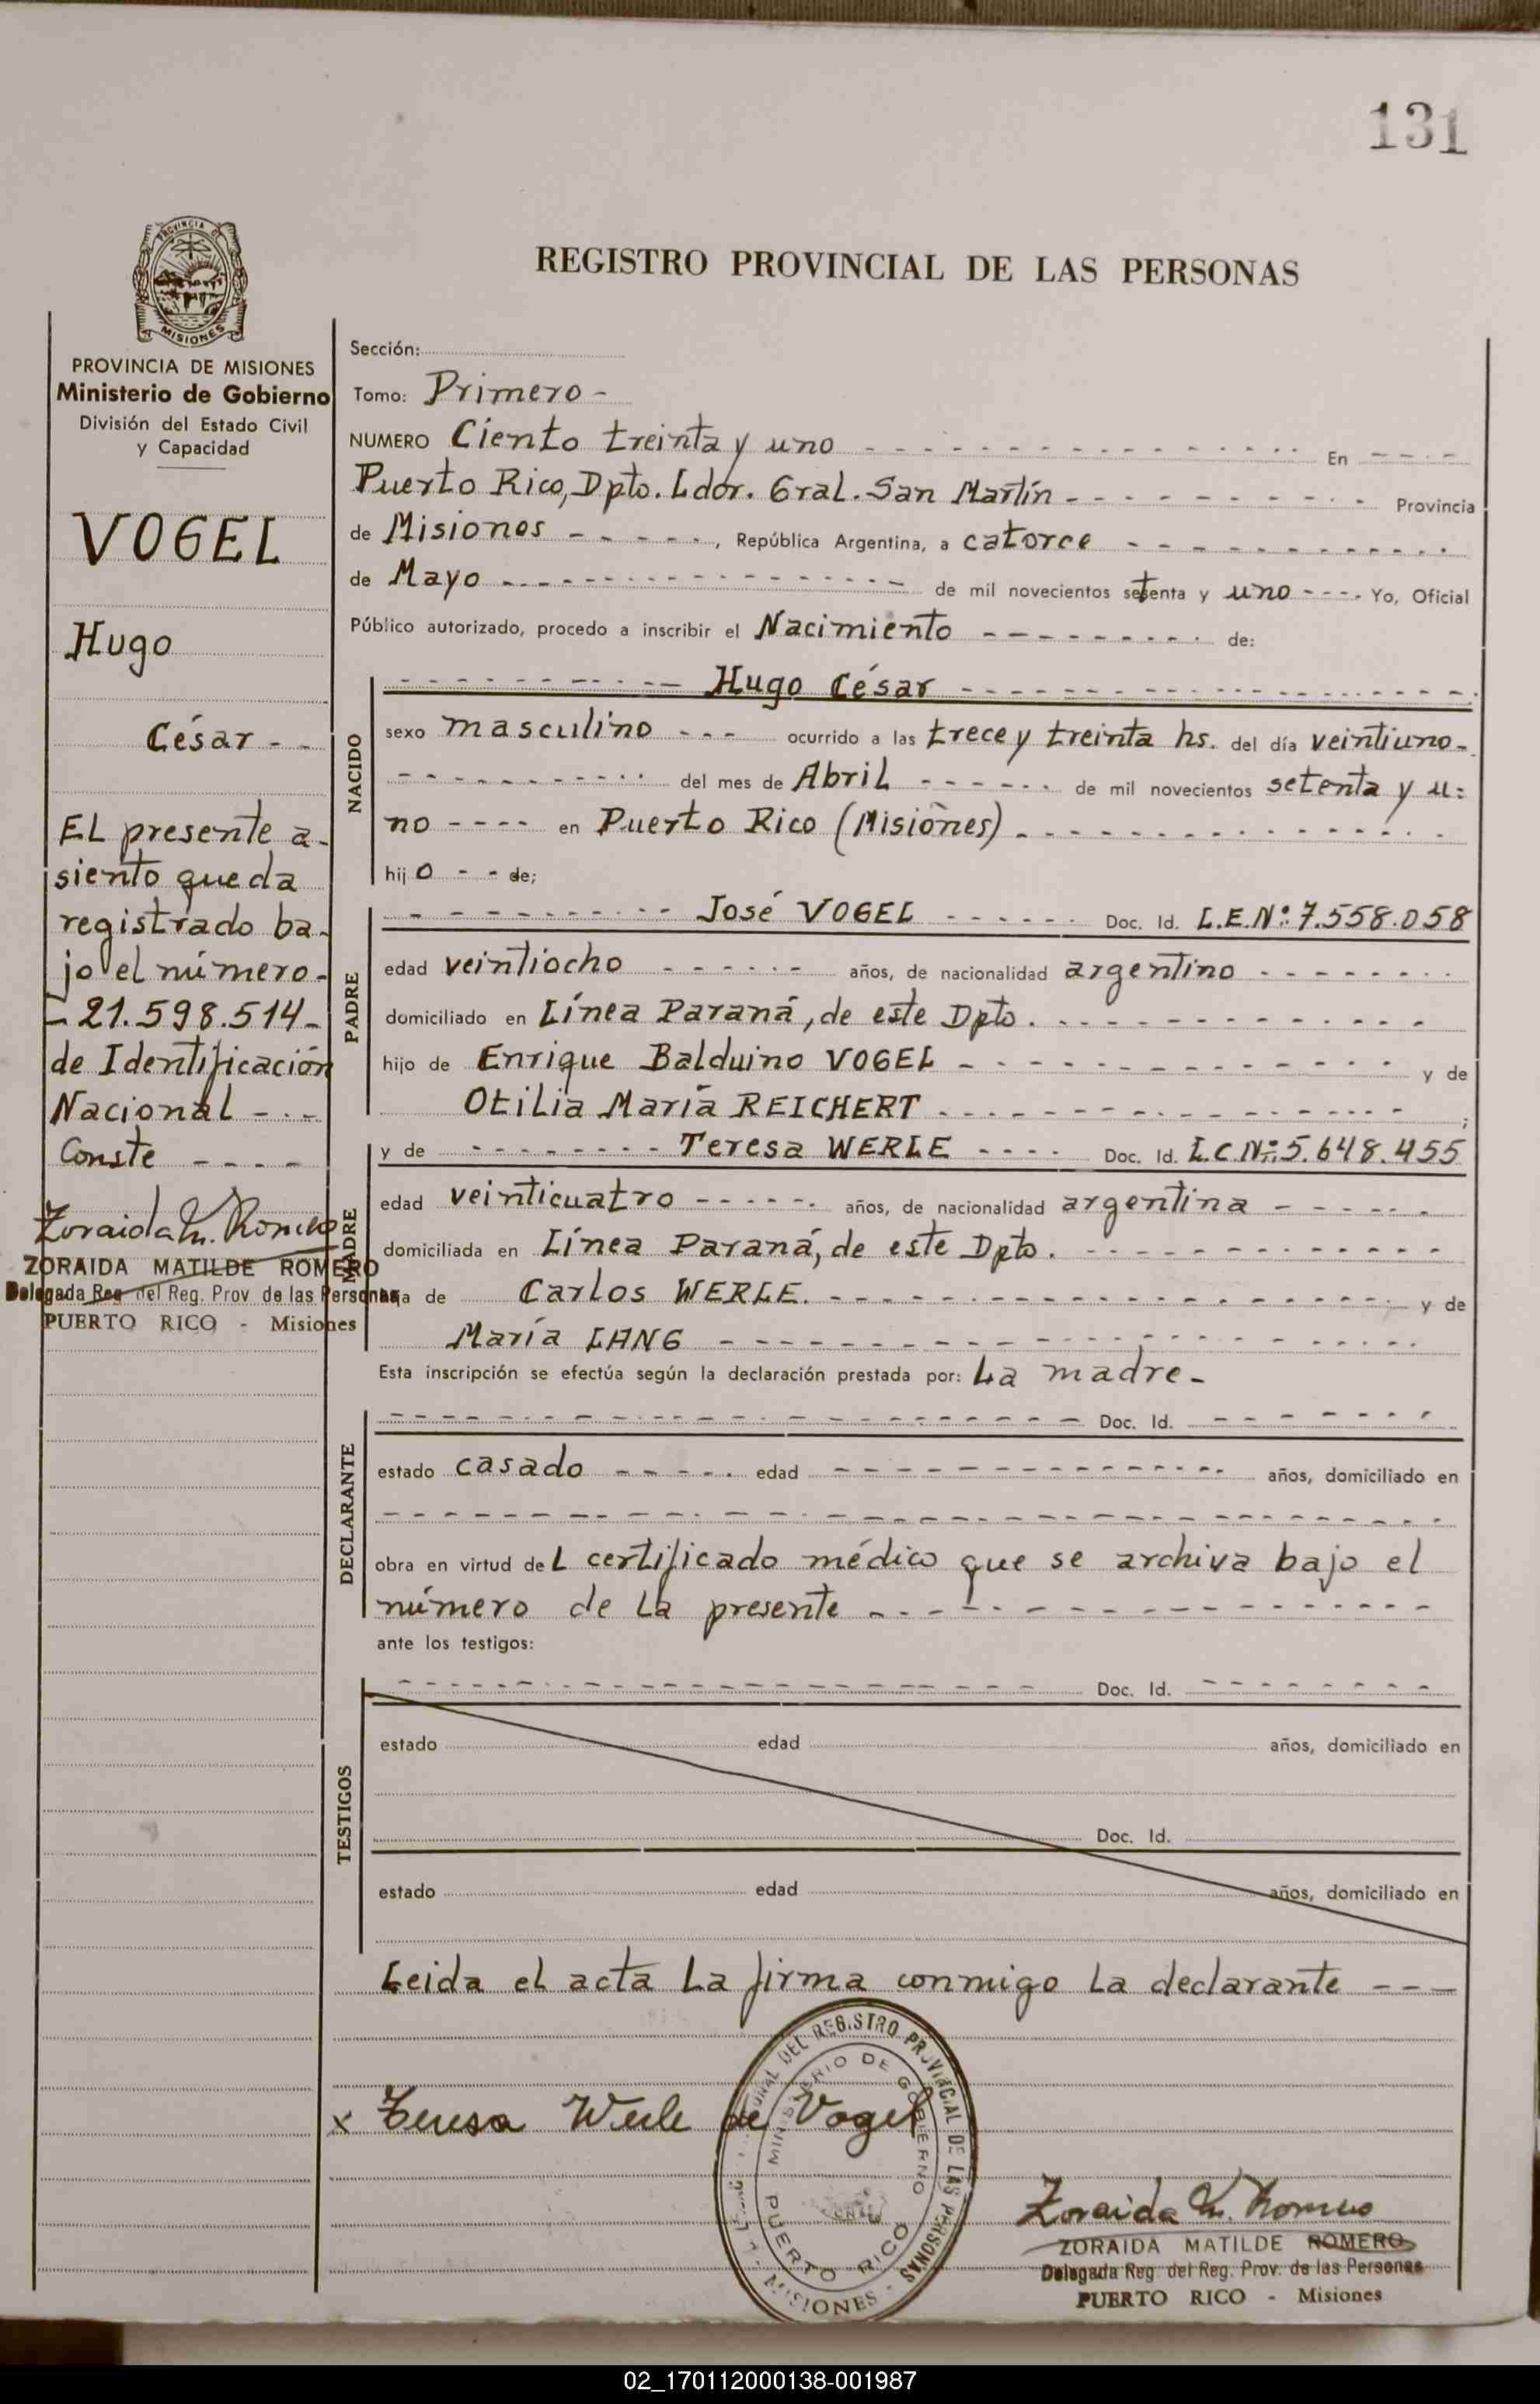 131
PROVINCIA DE
MISIONES
REGISTRO PROVINCIAL DE LAS PERSONAS
PROVINCIA DE MISIONES
Ministerio de Gobierno
División del Estado Civil
y Capacidad
VOGEL
Hugo
César - -
El presente a-
siento queda
registrado ba-
jo el número-
- 21.598.514-
de Identificación
Nacional - - -
Conste - - - -
Zoraida M. Romero
ZORAIDA MATILDE ROMERO
Delegada Reg. del Reg. Prov. de las Personas
PUERTO RICO - Misiones
Sección:
Tomo: Primero -
NUMERO Ciento treinta y uno - - - En - - - -
Puerto Rico, Dpto. Ldor. Gral. San Martín - - - Provincia
de Misiones - - - , República Argentina, a catorce - - -
de Mayo - - - de mil novecientos setenta y uno - - - Yo, Oficial
Público autorizado, procedo a inscribir el Nacimiento - - - de:
NACIDO
- - - Hugo César - - -
sexo masculino - - - ocurrido a las trece y treinta hs. del día veintiuno-
- - - del mes de Abril - - - de mil novecientos setenta y u=
no - - - - en Puerto Rico (Misiones) - - -
hijo - - de;
PADRE
- - - José VOGEL - - - Doc. Id. L.E.Nº: 7.558.058
edad veintiocho - - - años, de nacionalidad argentino - - -
domiciliado en Línea Paraná, de este Dpto. - - -
hijo de Enrique Balduino VOGEL - - - y de
Otilia María REICHERT - - - ;
MADRE
y de - - - Teresa WERLE - - - - Doc. Id. L.C.Nº: 5.648.455
edad veinticuatro - - - años, de nacionalidad argentina - - -
domiciliada en Línea Paraná, de este Dpto. - - -
hija de Carlos WERLE. - - - y de
María LANG - - -
Esta inscripción se efectúa según la declaración prestada por: La madre -
DECLARANTE
- - - Doc. Id. - - -
estado casado - - - edad - - - años, domiciliado en
- - -
obra en virtud del certificado médico que se archiva bajo el
número de la presente - - -
ante los testigos:
TESTIGOS
- - - Doc. Id. - - -
estado edad años, domiciliado en
Doc. Id.
estado edad años, domiciliado en
Leida el acta la firma conmigo la declarante - - -
x Teresa Werle de Vogel
DEL REGISTRO PROVINCIAL DE LAS PERSONAS
MINISTERIO DE GOBIERNO
PUERTO RICO
- MISIONES -
Zoraida M. Romero
ZORAIDA MATILDE ROMERO
Delegada Reg. del Reg. Prov. de las Personas
PUERTO RICO - Misiones
02_170112000138-001987